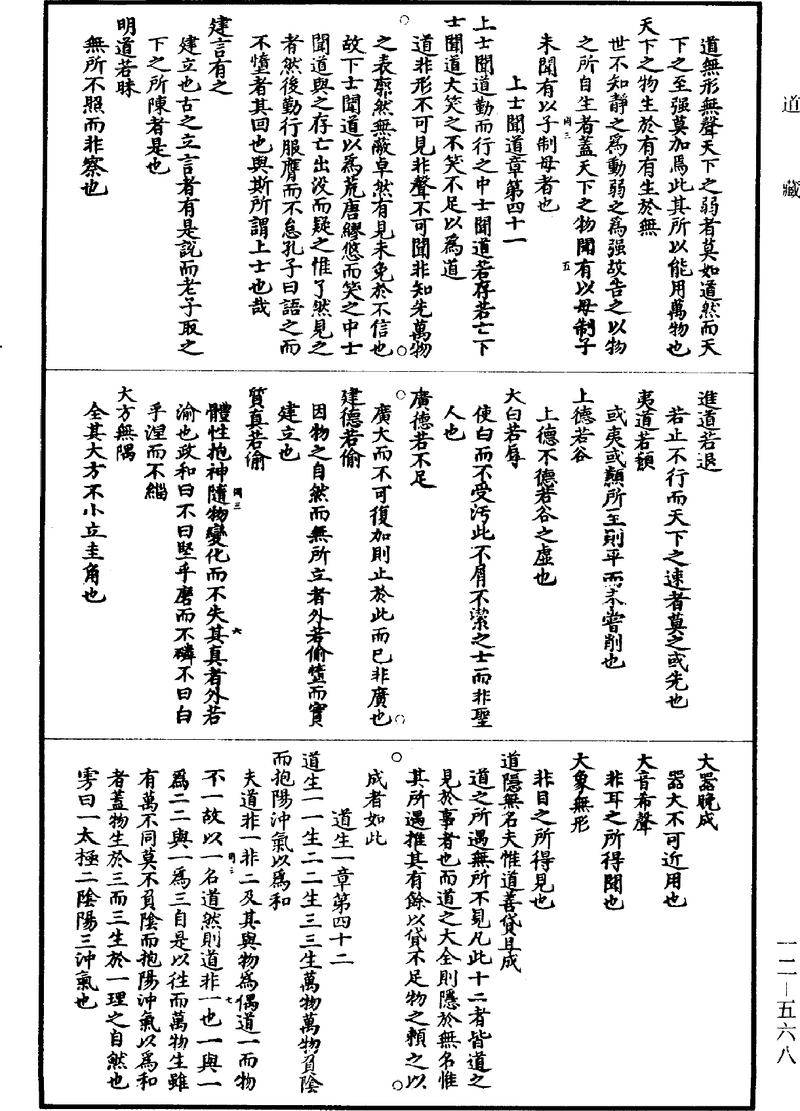 道藏
道無形無聲天下之弱者莫如道然而天
下之至强莫加焉此其所以能用萬物也
天下之物生於有有生於無
世不知靜之爲動弱之爲强故告之以物
之所自生者蓋天下之物聞有以母制子
未聞有以子制母者也
上士聞道章第四十一
上士聞道勤而行之中士聞道若存若亡下
士聞道大笑之不笑不足以爲道
道非形不可見非聲不可聞非知先萬物
之表廓然無蔽卓然有見未免於不信也
故下士聞道以爲荒唐繆悠而笑之中士
聞道與之存亡出没而疑之惟了然見之
者然後勤行服膺而不怠孔子曰語之而
不憧者其回也與斯所謂上士也哉
建言有之
建立也古之立言者有是說而老子取之
下之所陳者是也
明道若昧
無所不照而非察也
進道若退
若止不行而天下之速者莫之或先也
夷道若纇
或夷或纇所至則平而未嘗削也
上德若谷
上德不德若谷之虛也
大白若辱
使白而不受污此不屑不潔之士而非聖
人也
廣德若不足
廣大而不可復加則止於此而已非廣也
建德若偷
因物之自然而無所立者外若偷惰而實
建立也
質真若偷
體性抱神隨物變化而不失其真者外若
渝也政和曰不曰堅乎磨而不磷不曰白
乎涅而不緇
大方無隅
全其大方不小立圭角也
大器晚成
器大不可近用也
大音希聲
非耳之所得聞也
大象無形
非目之所得見也
道隱無名夫惟道善貸且成
道之所遇無所不見凡此十二者皆道之
見於事者也而道之大全則隱於無名惟
其所遇推其有餘以貸不足物之賴之以
成者如此
道生一章第四十二
道生一一生二二生三三生萬物萬物負陰
而抱陽沖氣以爲和
夫道非一非二及其與物爲偶道一而物
不一故以一名道然則道非一也一與一
爲二二與一爲三自是以往而萬物生雖
有萬不同莫不負陰而抱陽沖氣以爲和
者蓋物生於三而三生於一理之自然也
雱曰一太極二陰陽三沖氣也
一二－五六八